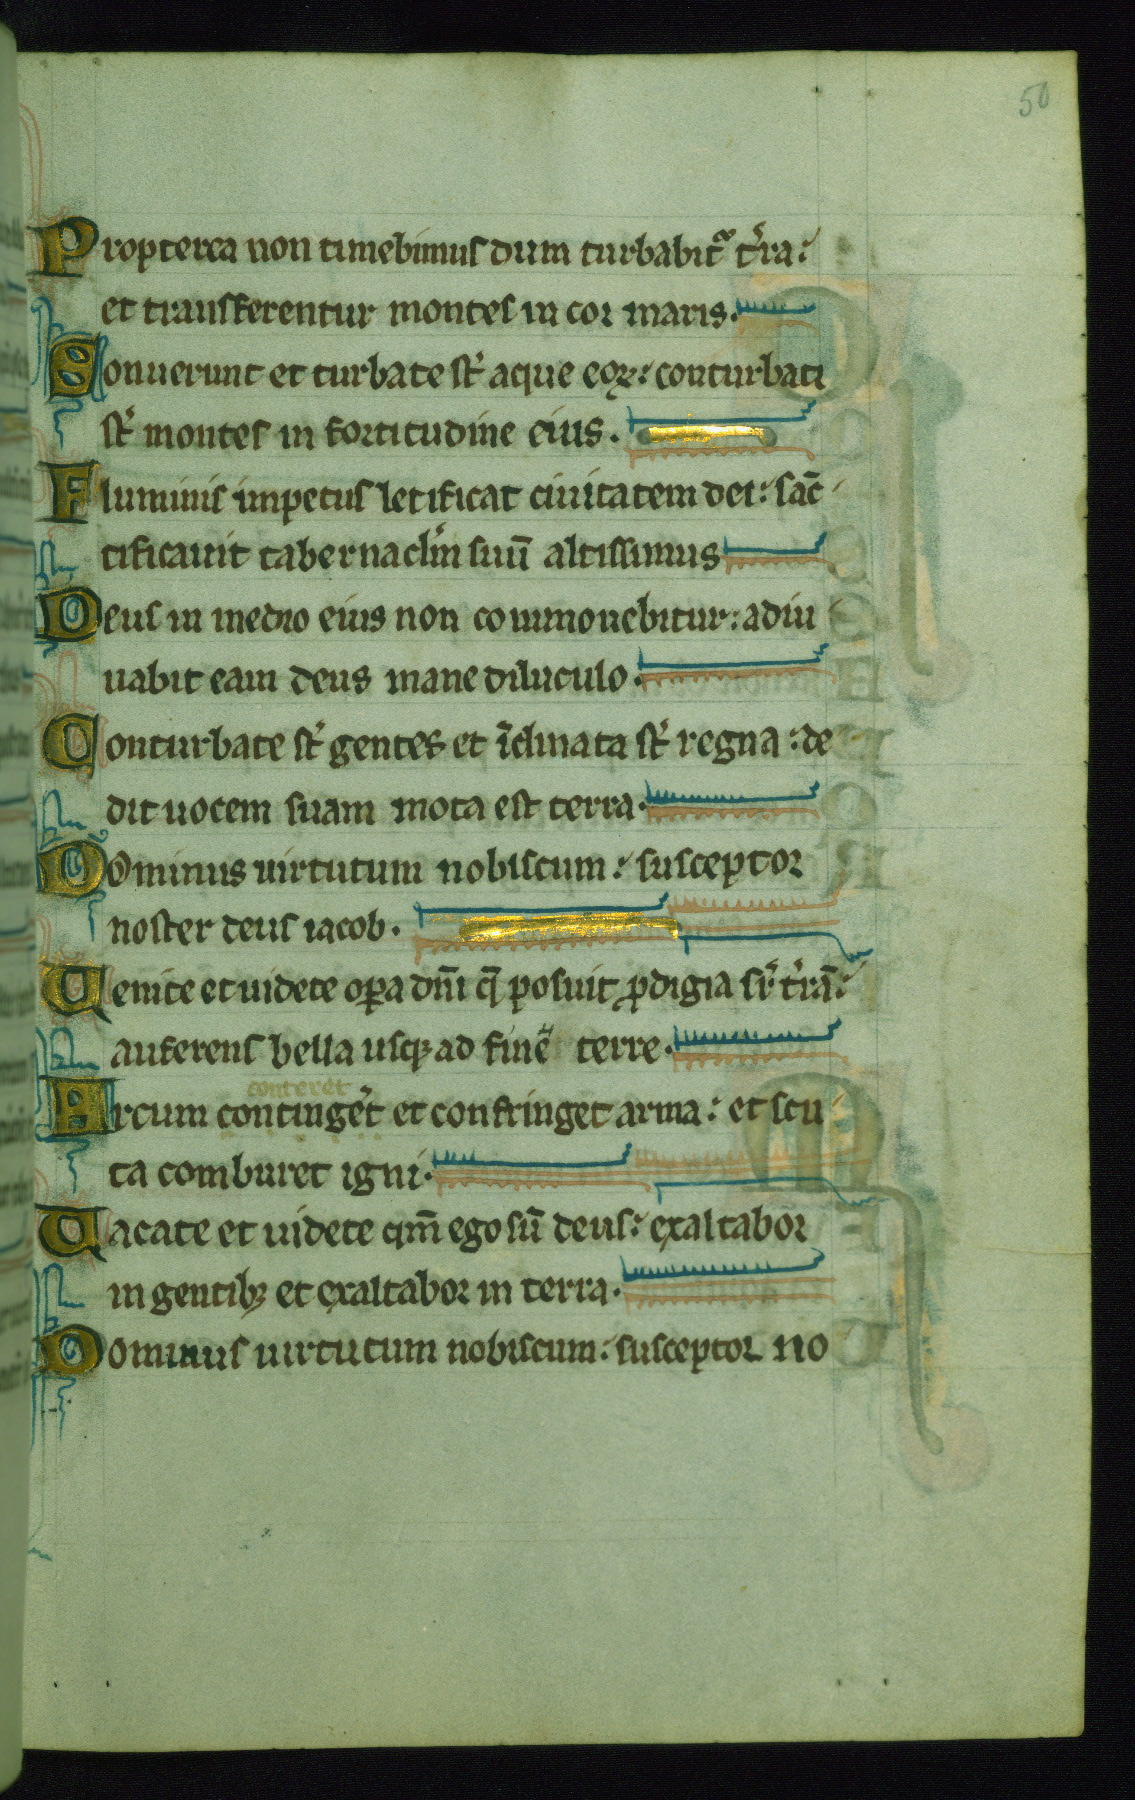 50
Propterea non timebimus dum turbabit᷑ t̉ra:
et transferentur montes in cor maris.
Sonuerunt et turbate st̉ aque eoꝝ: conturbati
st̉ montes in fortitudine eius.
Fluminis impetus letificat ciuitatem dei: sac̄
tificauit tabernacl̉m suū altissimus
Deus in medio eius non commouebitur: adiu
uabit eam deus mane diluculo.
Conturbate st̉ gentes et īclinata st̉ regna: de
dit uocem suam mota est terra.
Dominus uirtutum nobiscum: susceptor
noster deus iacob.
Uenite et uidete oꝑa dn̄i q̄ posuit ꝓdigia sr̉ t̉rā:
auferens bella usqꝫ ad finē terre.
conteret
Arcum conting̉et et confringet arma: et scu
ta comburet igni.
Uacate et uidete qm̄ ego sū deus: exaltabor
in gentibꝫ et exaltabor in terra.
Dominus uirtutum nobiscum: susceptor no